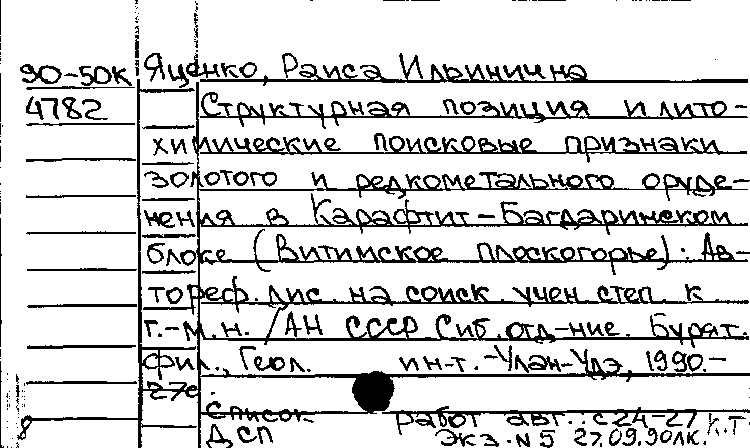 90-50К Яценко, Раиса Ильинична
4782 Структурная позиция и лито-
химические поисковые признаки
золотого и редкометального оруде-
нения в Карафтит-Багдаринском
блоке (Витимское плоскогорье): Ав-
тореф. дис. на соиск. учен. степ. к.
г.-м.н. /АН СССР Сиб. отд-ние. Бурят.
фил., Геол. ин-т. -Улан-Удэ, 1990.-
27с.
Список работ авт.: с 24-27 К.Т
ДСП Экз. N 5 27.09.90 ЛК.
8